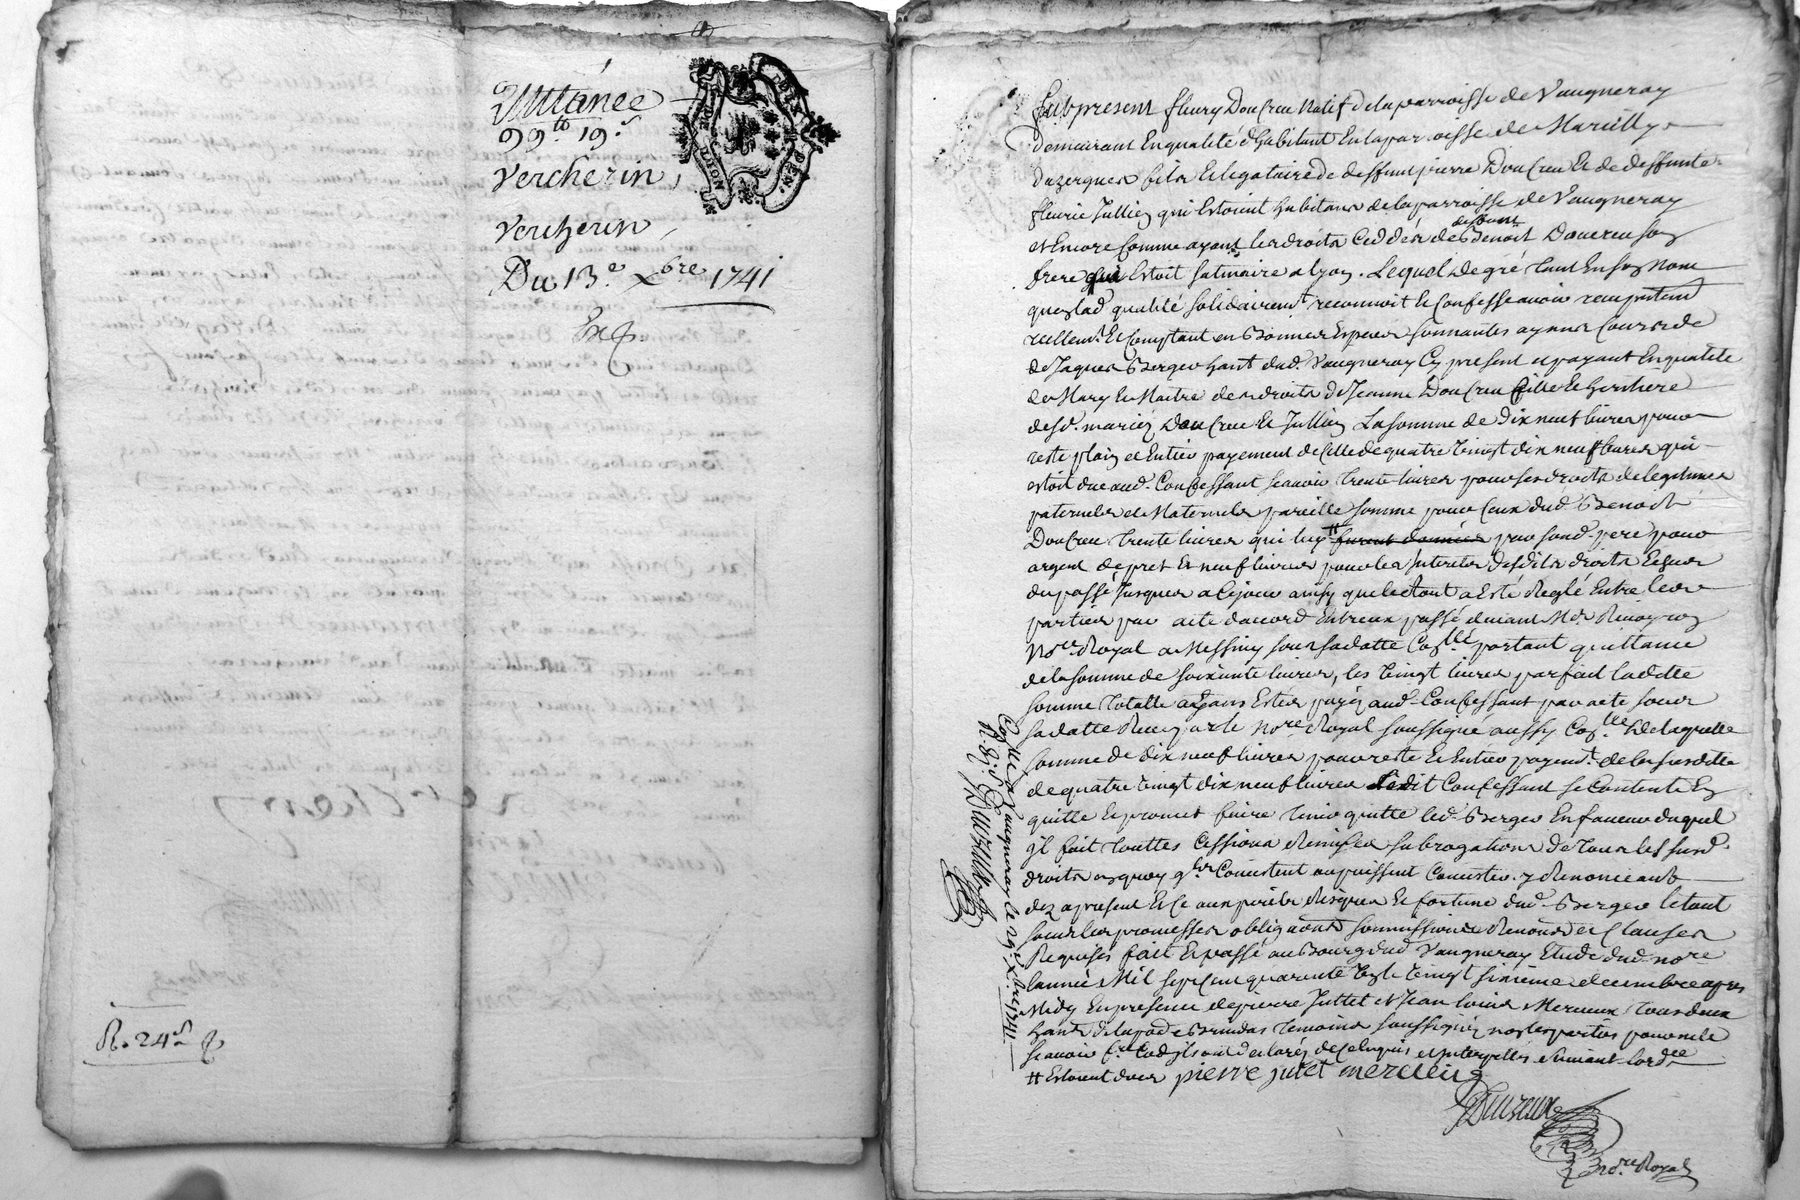 Quittance
99 lt 19 s
Vercherin
Vercherin
Du 13e Xbre 1741
Exp.
GEN. DE LION
R. 24 s
Fut present fleury Doucreu Natif de la parroisse de Vaugneray
demeurant En qualité d'habitant En la parroisse de Marcilly
dazergues fils et legataire de deffunt pierre Doucreu Et de deffunte
fleurie Jullien qui Estoient habitans de la parroisse de Vaugneray
et Encore Comme ayant les droits Ceddés de deffunt Benoit Doucreu son
frere qui Estoit satinaire a lyon. Lequel de gré tant En son Nom
qu'en lad. qualité solidairemt. reconnoit Et Confesse avoir receu présentemt
reellemt. Et Comptant en Bonnes Especes sonnantes ayant Cours de
de Jaques Berger hant. dud. Vaugneray Cy present et payant En qualité
de Mary Et Maitre des droits de Jeanne Doucreu fille Et heritière
desd. mariés Doucreu Et Jullien La somme de Dix neuf livres pour
reste plain et Entier payement de Celle de quatre Vingt dix neuf livres qui
estoit due aud. Confessant scavoir trente livres pour ses droits de legitimes
paternels et Maternels pareille somme pour Ceux dud. Benoit
Doucreu trente livres qui luy # furent données par sond. pere pour
argent de pret Et neuf livres pour les Interets desdits droits Echus
du passé Jusques a Ce jour ainsy que le tout a Esté Reglé Entre les
parties par acte d'accord Entreux passé devant Me
Nore. Royal a Messimy sous sa datte Conllé portant quittance
de la somme de soixante livres, les Vingt livres parfait ladite
somme totalle ayans Estés payés aud. Confessant par acte sous
sa datte Receu par le Nore. Royal soussigné aussy Conllé De laquelle
somme de dix neuf livres pour reste Et Entier payemt. de la susditte
de quatre Vingt dix neuf livres Ledit Confessant se Contente En
quitte Et promet faire tenir quitte led. Berger En faveur duquel
il fait touttes Cessions Remises subrogations de tous les susd.
droits en quoy qu'ils Consistent ou puissent Consister y Renonceant
dez a present Et Ce aux perils Risques Et fortune dud. Berger le tout
sous les promesses obligaons soumissions Renonons et Clauses
Requises fait Et passé au Bourg dud. Vaugneray Etude dud. nore
l'année Mil sept Cent quarante Un le Vingt sixieme decembre apres
Midy En presence de pierre Juttet et Jean louis Mercieux tous deux
hants de la pse de Brindas temoins soussignés non les parties pour ne le
scavoir Ce qu'ils ont declarés de Ce Enquis et Interpellés suivant lordce
# Estoient dues pierre jutet mercieux
Dutreux
nore. Royal
Conllé a Vaugneray le 29e Xbre 1741